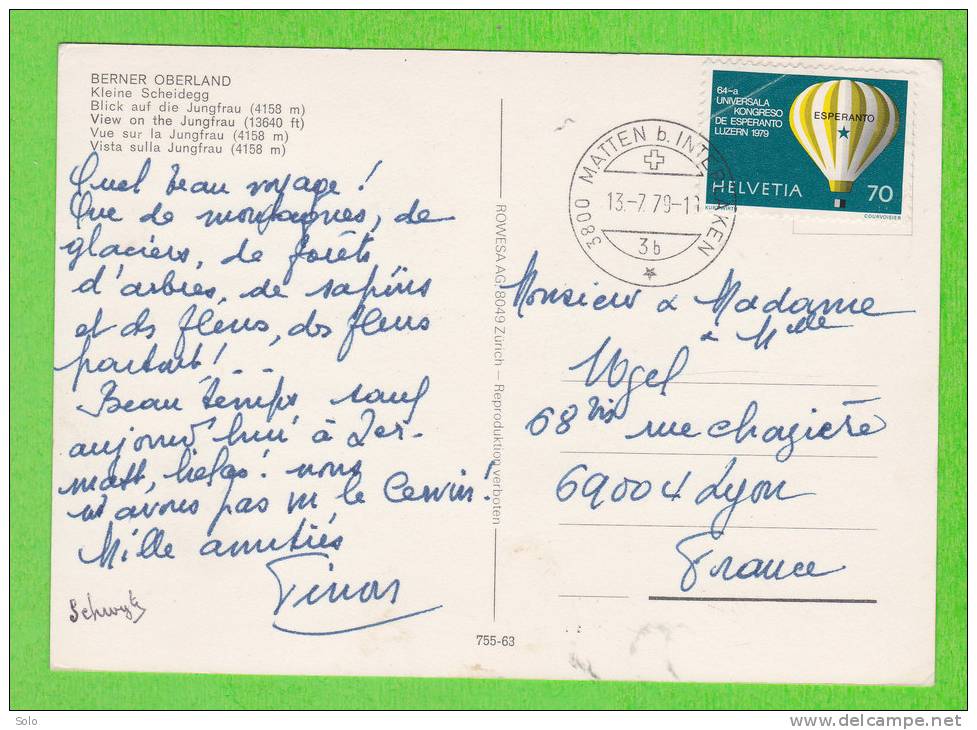 BERNER OBERLAND
Kleine Scheidegg
Blick auf die Jungfrau (4158 m)
View on the Jungfrau (13640 ft)
Vue sur la Jungfrau (4158 m)
Vista sulla Jungfrau (4158 m)
Quel beau voyage !
Que de montagnes, de
glaciers, de forêts
d'arbres, de sapins
et des fleurs, des fleurs
partout ! . .
Beau temps sauf
aujourd'hui à Zer-
matt, hélas ! nous
n'avons pas vu le Cervin !
Mille amitiés
Schwytz
ROWESA AG, 8049 Zürich — Reproduktion verboten
755-63
3800 MATTEN b. INTERLAKEN
13.-7.79-11
3b
64-a
UNIVERSALA
KONGRESO
DE ESPERANTO
LUZERN 1979
ESPERANTO
HELVETIA
70
COURVOISIER
Monsieur & Madame
& Mlle
Vogel
68 bis rue chazière
69004 Lyon
France
Solo
www.delcampe.net